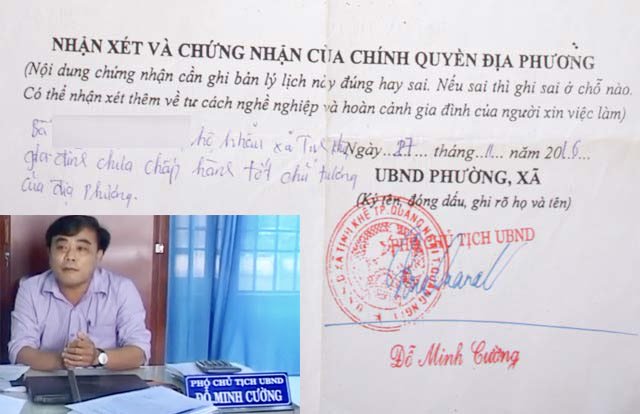 NHẬN XÉT VÀ CHỨNG NHẬN CỦA CHÍNH QUYỀN ĐỊA PHƯƠNG
(Nội dung chứng nhận cần ghi bản lý lịch này đúng hay sai. Nếu sai thì ghi sai ở chỗ nào.
Có thể nhận xét thêm về tư cách nghề nghiệp và hoàn cảnh gia đình của người xin việc làm)
Bà hộ khẩu xã Tịnh Khê
gia đình chưa chấp hành tốt chủ trương
của địa phương.
Ngày 27 tháng 11 năm 2016
UBND PHƯỜNG, XÃ
(Ký tên, đóng dấu, ghi rõ họ và tên)
PHÓ CHỦ TỊCH UBND
U.B.N.D XÃ TỊNH KHÊ TP. QUẢNG NGÃI T. QUẢNG NGÃI
Đỗ Minh Cường
PHÓ CHỦ TỊCH UBND
ĐỖ MINH CƯỜNG